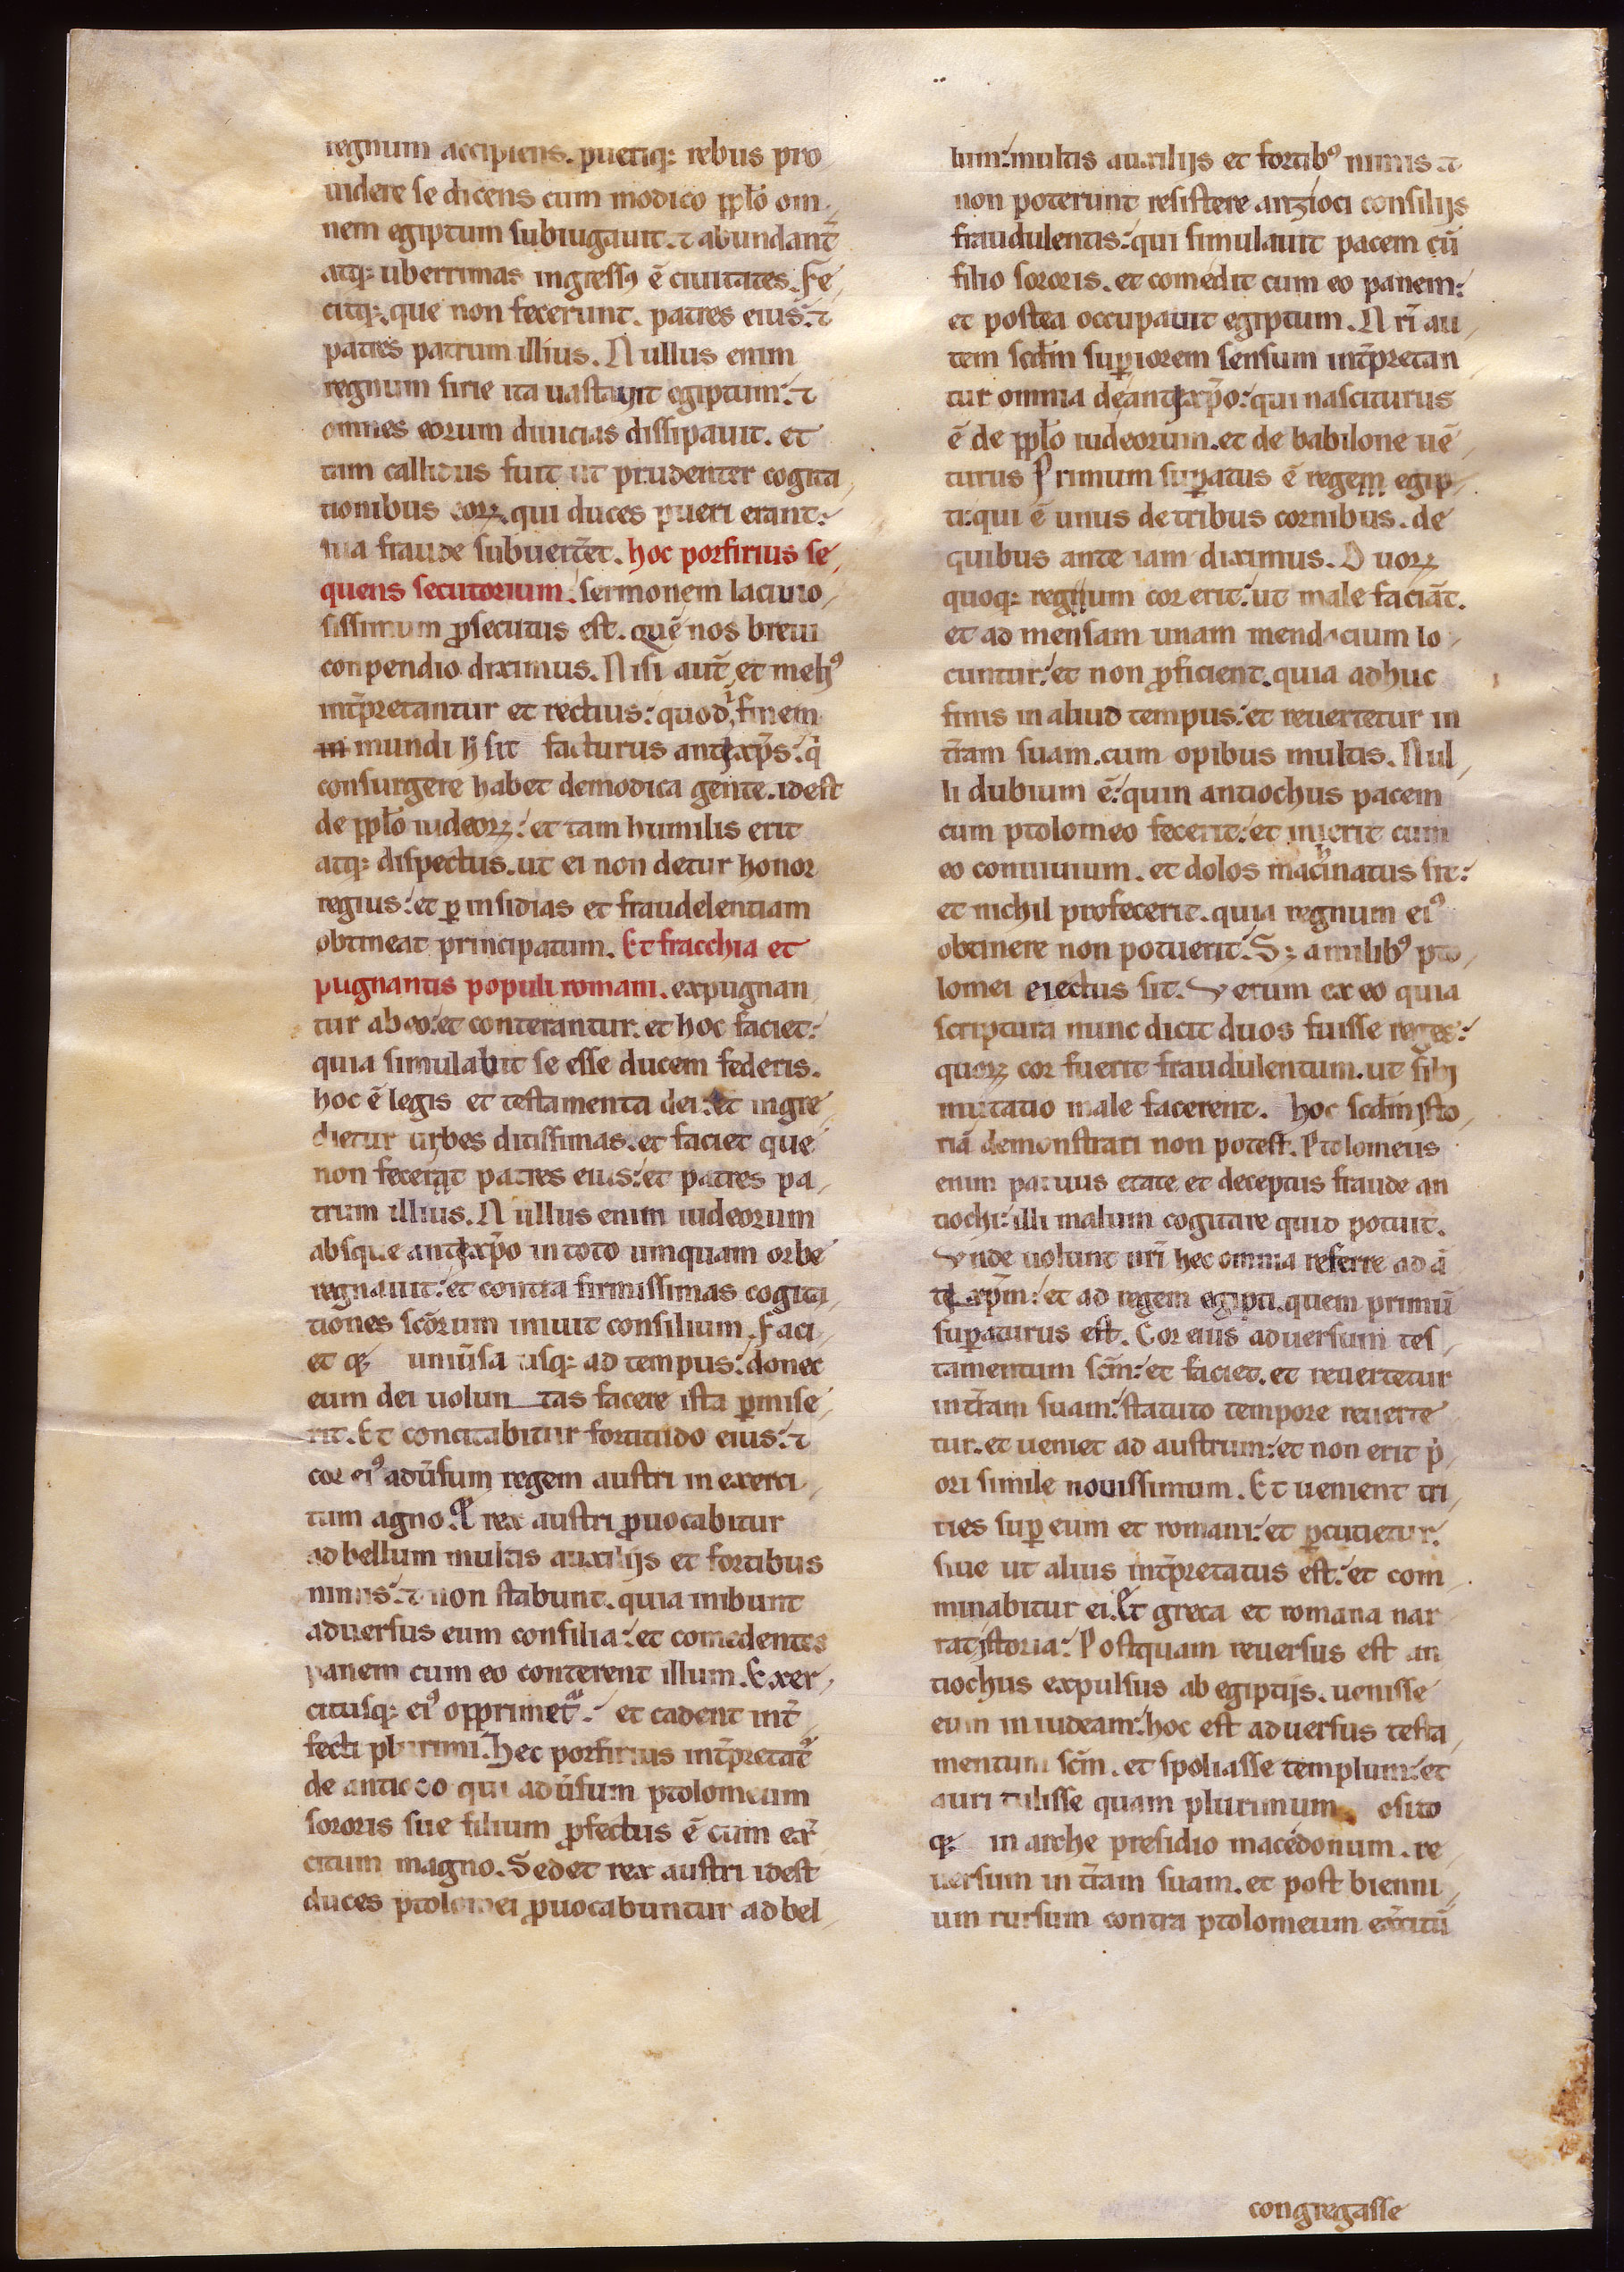 regnum accipiens. pueriq; rebus pro
uidere se dicens cum modico pp̄lo om
nem egiptum subiugauit. ⁊ abundant̄
atq; uberrimas ingressꝰ ē ciuitates. Fe
citq; que non fecerunt. patres eius: ⁊
patres patrum illius. Nullus enim
regnum sirie ita uastauit egiptum: ⁊
omnes eorum diuicias dissipauit. et
tam callidus fuit ut prudenter cogita
tionibus eorꝝ qui duces pueri erant:
sua fraude subuert̄et. hoc porfirius se
quens secutorium. sermonem laciuio
sissimum ꝓsecutus est. quē nos breui
conpendio diximus. Nisi aut̄ et meliꝰ
int̄pretantur et rectius: quod i finem
mundi h̄ sit facturus antexp̄s: q̇
consurgere habet demodica gente. idest
de pp̄lo iudeorꝝ: et tam humilis erit
atq; dispectus. ut ei non detur honor
regius: et ꝑ insidias et fraudelentiam
obtineat principatum. Et fracchia et
pugnantis populi romani. expugnan
tur ab eo: et conterantur. et hoc faciet:
quia simulabit se esse ducem federis.
hoc ē legis et testamenta dei: et ingre
dietur urbes ditissimas. et faciet que
non fecerāt patres eius: et patres pa
trum illius. Nullus enim iudeorum
absque antexp̄o in toto umquam orbe
regnauit: et contra firmissimas cogita
tiones sc̄orum iniuit consilium. Faci
et q; uniūsa usq; ad tempus: donec
eum dei uolun tas facere ista ꝑmise
rit. Et concitabitur fortitudo eius: ⁊
cor eiꝰ adūsum regem austri in exerci
tum agno. Et rex austri ꝓuocabitur
ad bellum multis auxilijs et fortibus
nimis: ⁊ non stabunt. quia inibunt
aduersus eum consilia: et comedentes
panem cum eo conterent illum. Exer
citusq; eiꝰ opprimet᷑: et cadent int̄
fecti plurimi. Hec porfirius int̄pretat᷑
de antioco qui adūsum ptolomeum
sororis sue filium ꝓfectus ē cum ex̄
citum magno. Sed et rex austri idest
duces ptolomei ꝓuocabuntur ad bel
lum: multis auxilijs et fortibꝰ nimis ⁊
non poterunt resistere antioci consilijs
fraudulentis: qui simulauit pacem cū
filio sororis. et comedit cum eo panem:
et postea occupauit egiptum. Nr̄i au
tem scd̄m suꝑiorem sensum int̄pretan
tur omnia de antexp̄o: qui nasciturus
ē de pp̄lo iudeorum. et de babilone uē
turus Primum suꝑatus ē regem egip
ti: qui ē unus de tribus cornibus. de
quibus ante iam diximus. Duorꝝ
quoq; regnum cor erit: ut male faciāt.
et ad mensam unam mendacium lo
cuntur: et non ꝓficient. quia adhuc
finis in aliud tempus: et reuertetur in
t̄ram suam. cum opibus multis. Nul
li dubium ē: quin antiochus pacem
cum ptolomeo fecerit: et inierit cum
eo conuiuium. et dolos machinatus sit:
et nichil profecerit. quia regnum eiꝰ
obtinere non potuerit: Sꝫ a militibꝰ pto
lomei eiectus sit. Verum ex eo quia
scriptura nunc dicit duos fuisse reges:
quorꝝ cor fuerit fraudulentum. ut sibi
mutatio male facerent. hoc scd̄m isto
riā demonstrari non potest. Ptolomeus
enim paruus etate et deceptus fraude an
tiochi: illi malum cogitare quid potuit.
Vnde uolunt nr̄i hec omnia referre ad ā
te xp̄m: et ad regem egipti. quem primū
suꝑaturus est. Cor eius aduersum tes
tamentum sc̄m: et faciet. et reuertetur
in t̄ram suam: statuto tempore reuerte
tur. et ueniet ad austrum: et non erit p̄
ori simile nouissimum. Et uenient tri
ries suꝑ eum et romani: et ꝑcutietur:
siue ut alius int̄pretatus est: et com
minabitur ei. Et greca et romana nar
rat istoria: Postquam reuersus est an
tiochus expulsus ab egiptijs. uenisse
eum in iudeam: hoc est aduersus testa
mentum sc̄m. et spoliasse templum: et
auri tulisse quam plurimum osito
q; in arche presidio macedonum. re
uersum in t̄ram suam. et post bienni
um rursum contra ptolomeum ex̄citū
congregasse